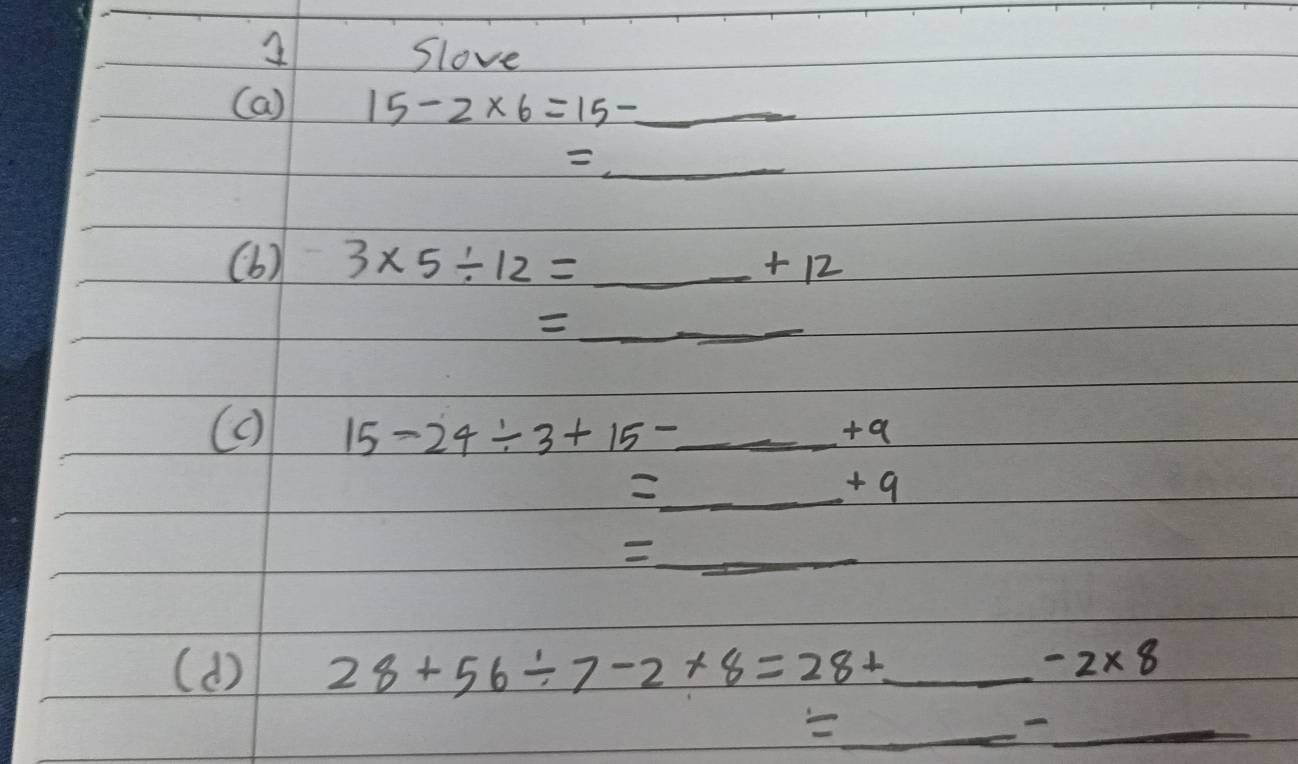 1 Slove
(a) 15 - 2 × 6 = 15 - ____
= ____
(b) 3 × 5 ÷ 12 = ____ + 12
= ____
(c) 15 - 24 ÷ 3 + 15 - ____ + 9
= ____ + 9
= ____
(d) 28 + 56 ÷ 7 - 2 × 8 = 28 + ____ - 2 × 8
= ____ - ____